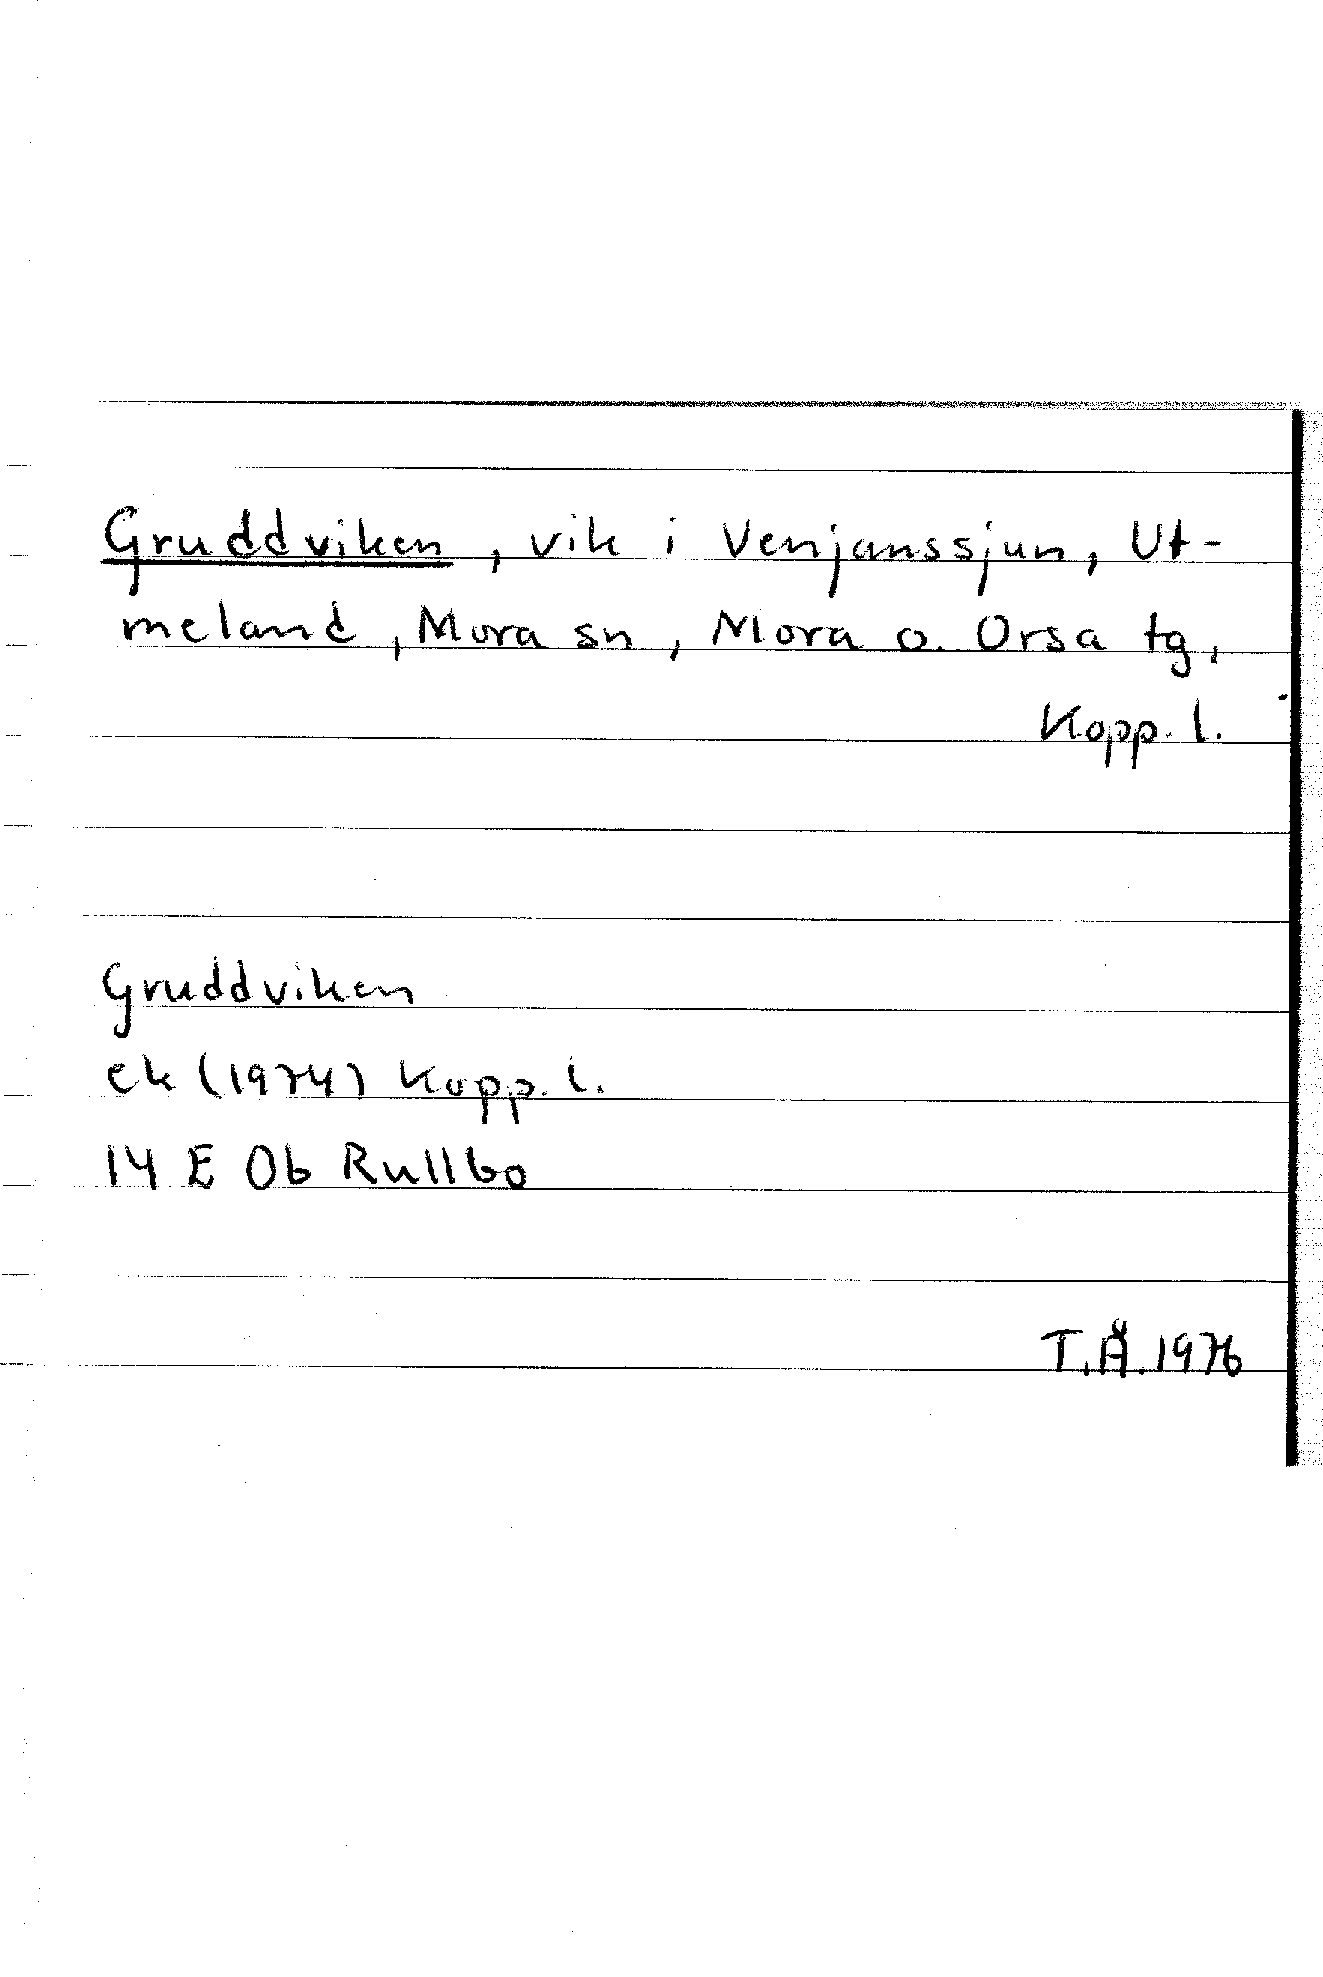 Gruddviken, vik i Venjanssjön, Ut-
meland, Mora sn, Mora o. Orsa tg,
Kopp. l.
Gruddviken
ek (1974) Kopp. l.
14 E 0b Rullbo
T.Å.1976